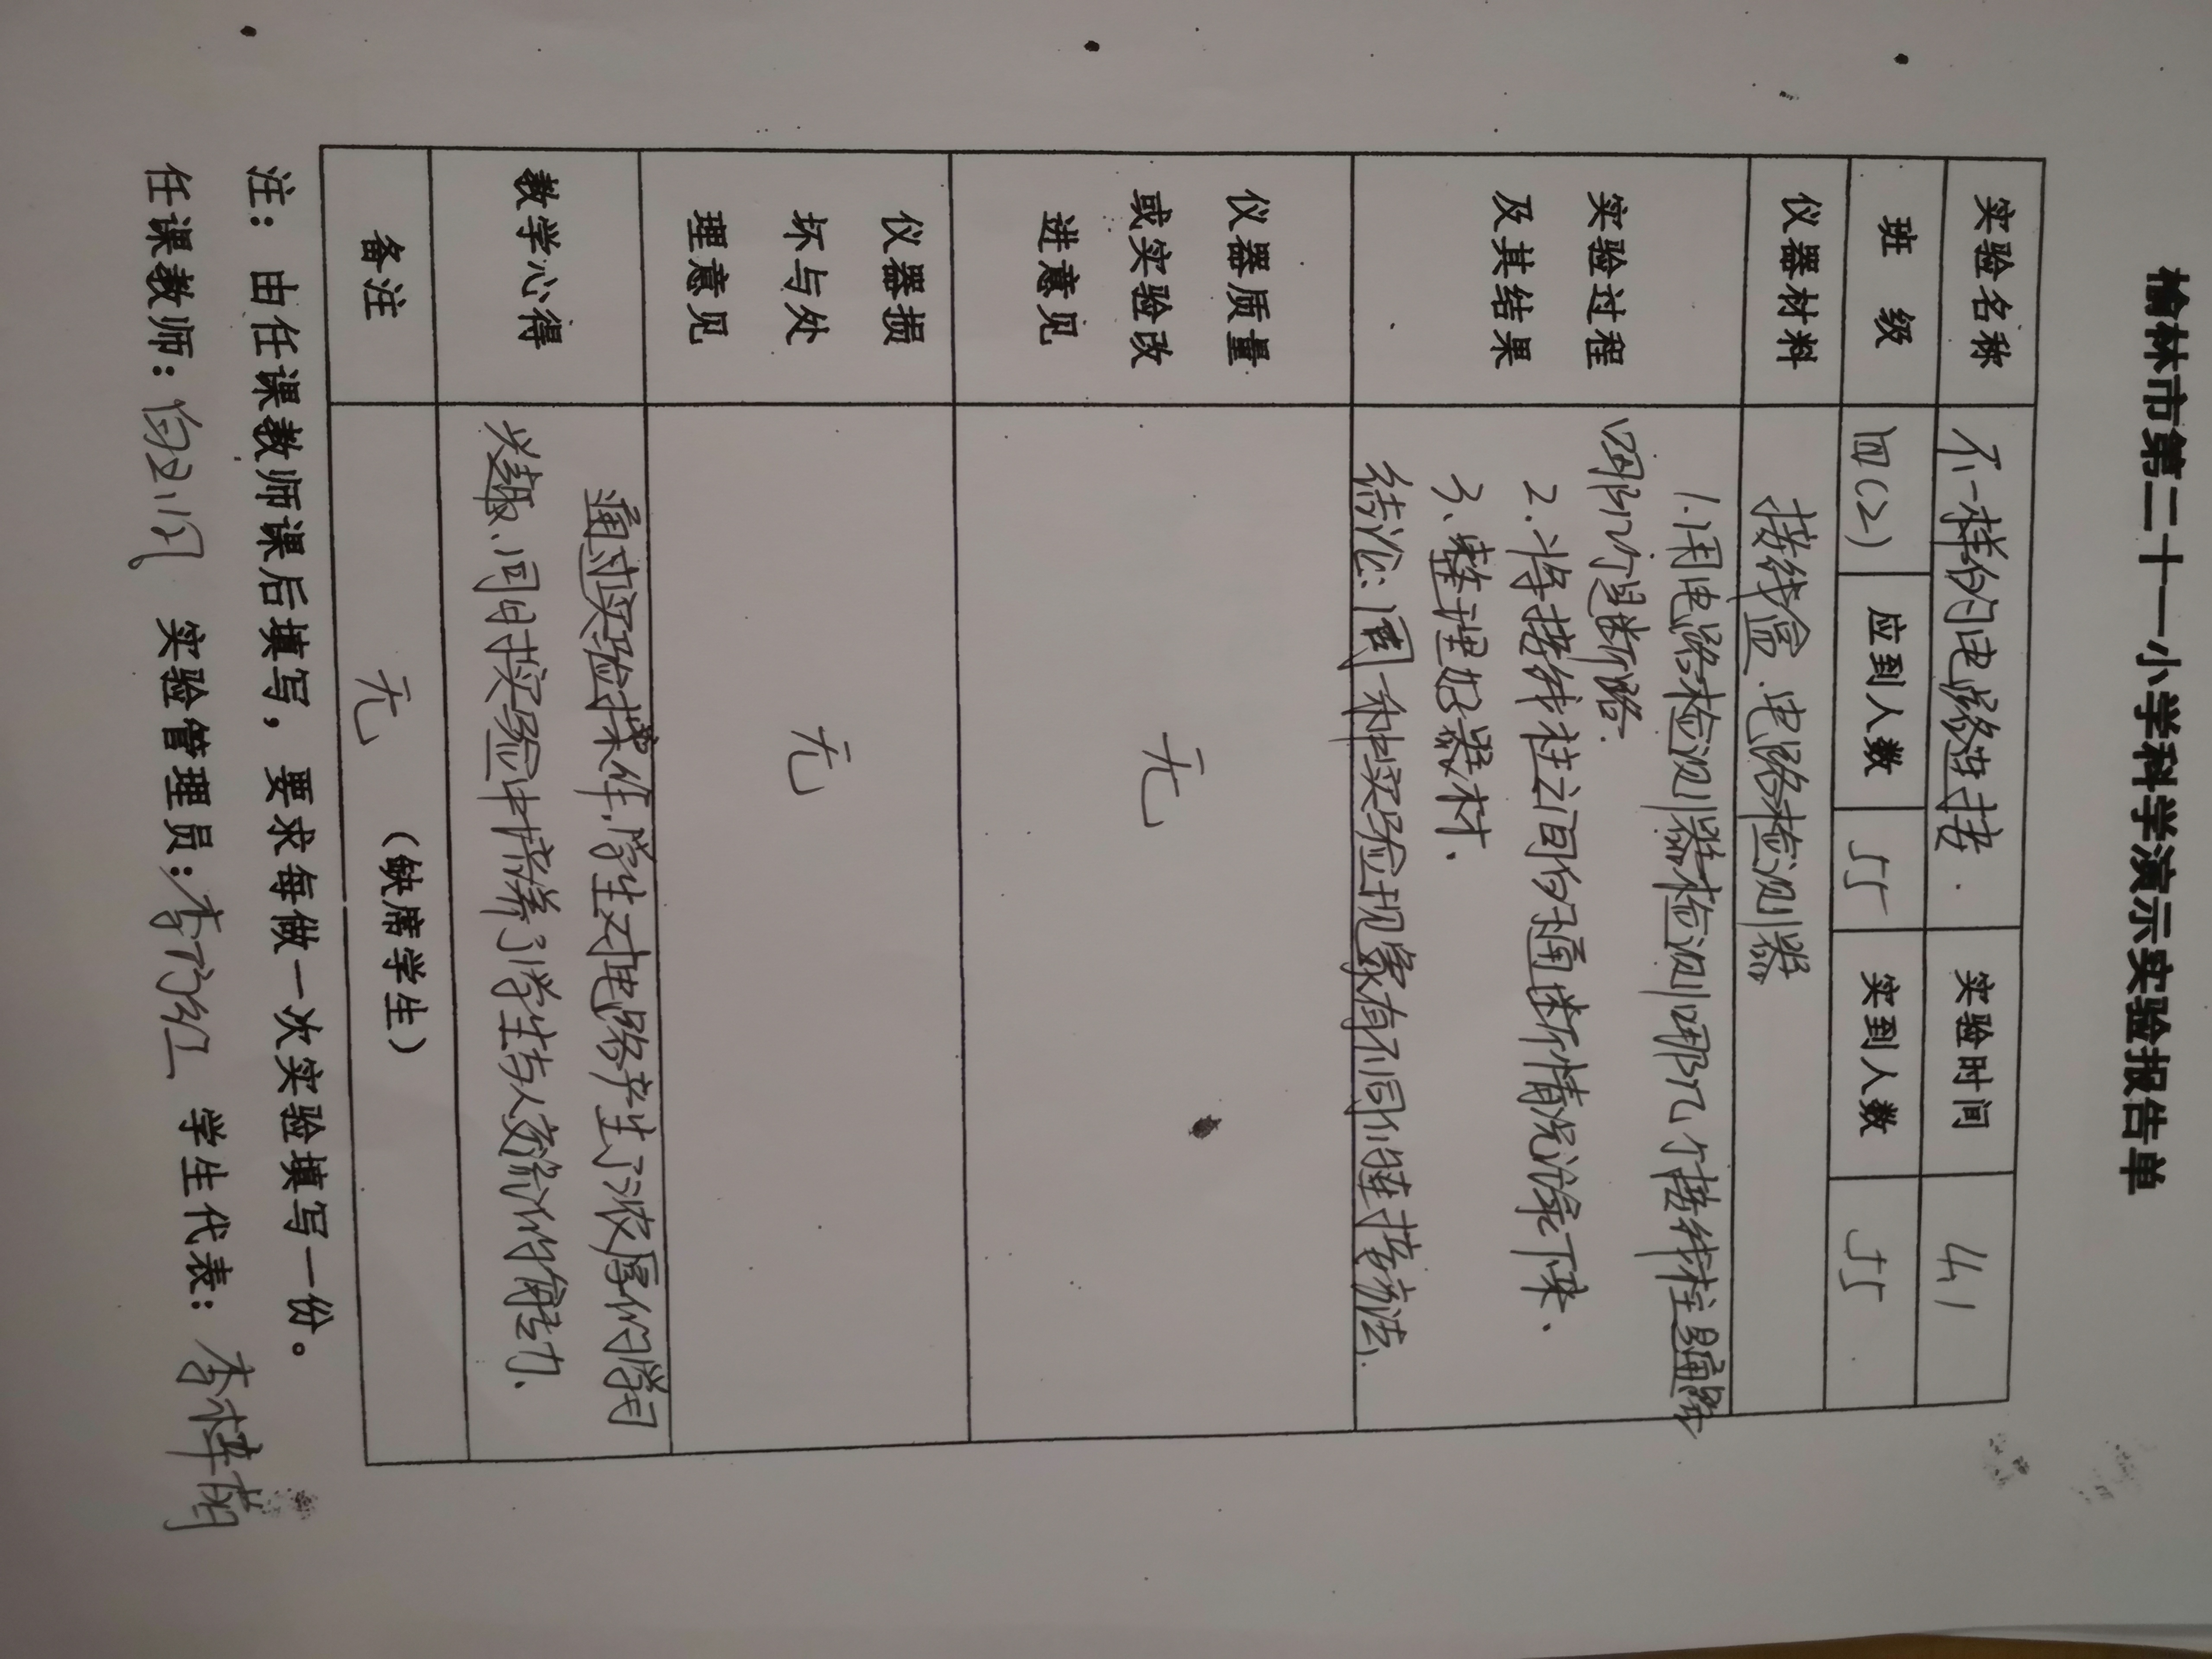 榆林市第二十一小学科学演示实验报告单
实验名称 不一样的电路连接. 实验时间 4.1
班 级 四(2) 应到人数 55 实到人数 55
仪器材料 接线盒.电路检测器
实验过程及其结果
1.用电路检测器检测哪几个接线柱是通路
哪几个是断路.
2.将接线柱之间的通断情况记录下来、
3、整理好器材、
结论:同一种实验现象有不同的连接方法.
仪器质量或实验改进意见 无
仪器损坏与处理意见 无
教学心得
通过实验操作,学生对电路产生了浓厚的学习
兴趣、同时实验中培养了学生与人交流的能力、
备注 无 (缺席学生)
注：由任课教师课后填写，要求每做一次实验填写一份。
任课教师： 实验管理员： 李 红 学生代表： 李